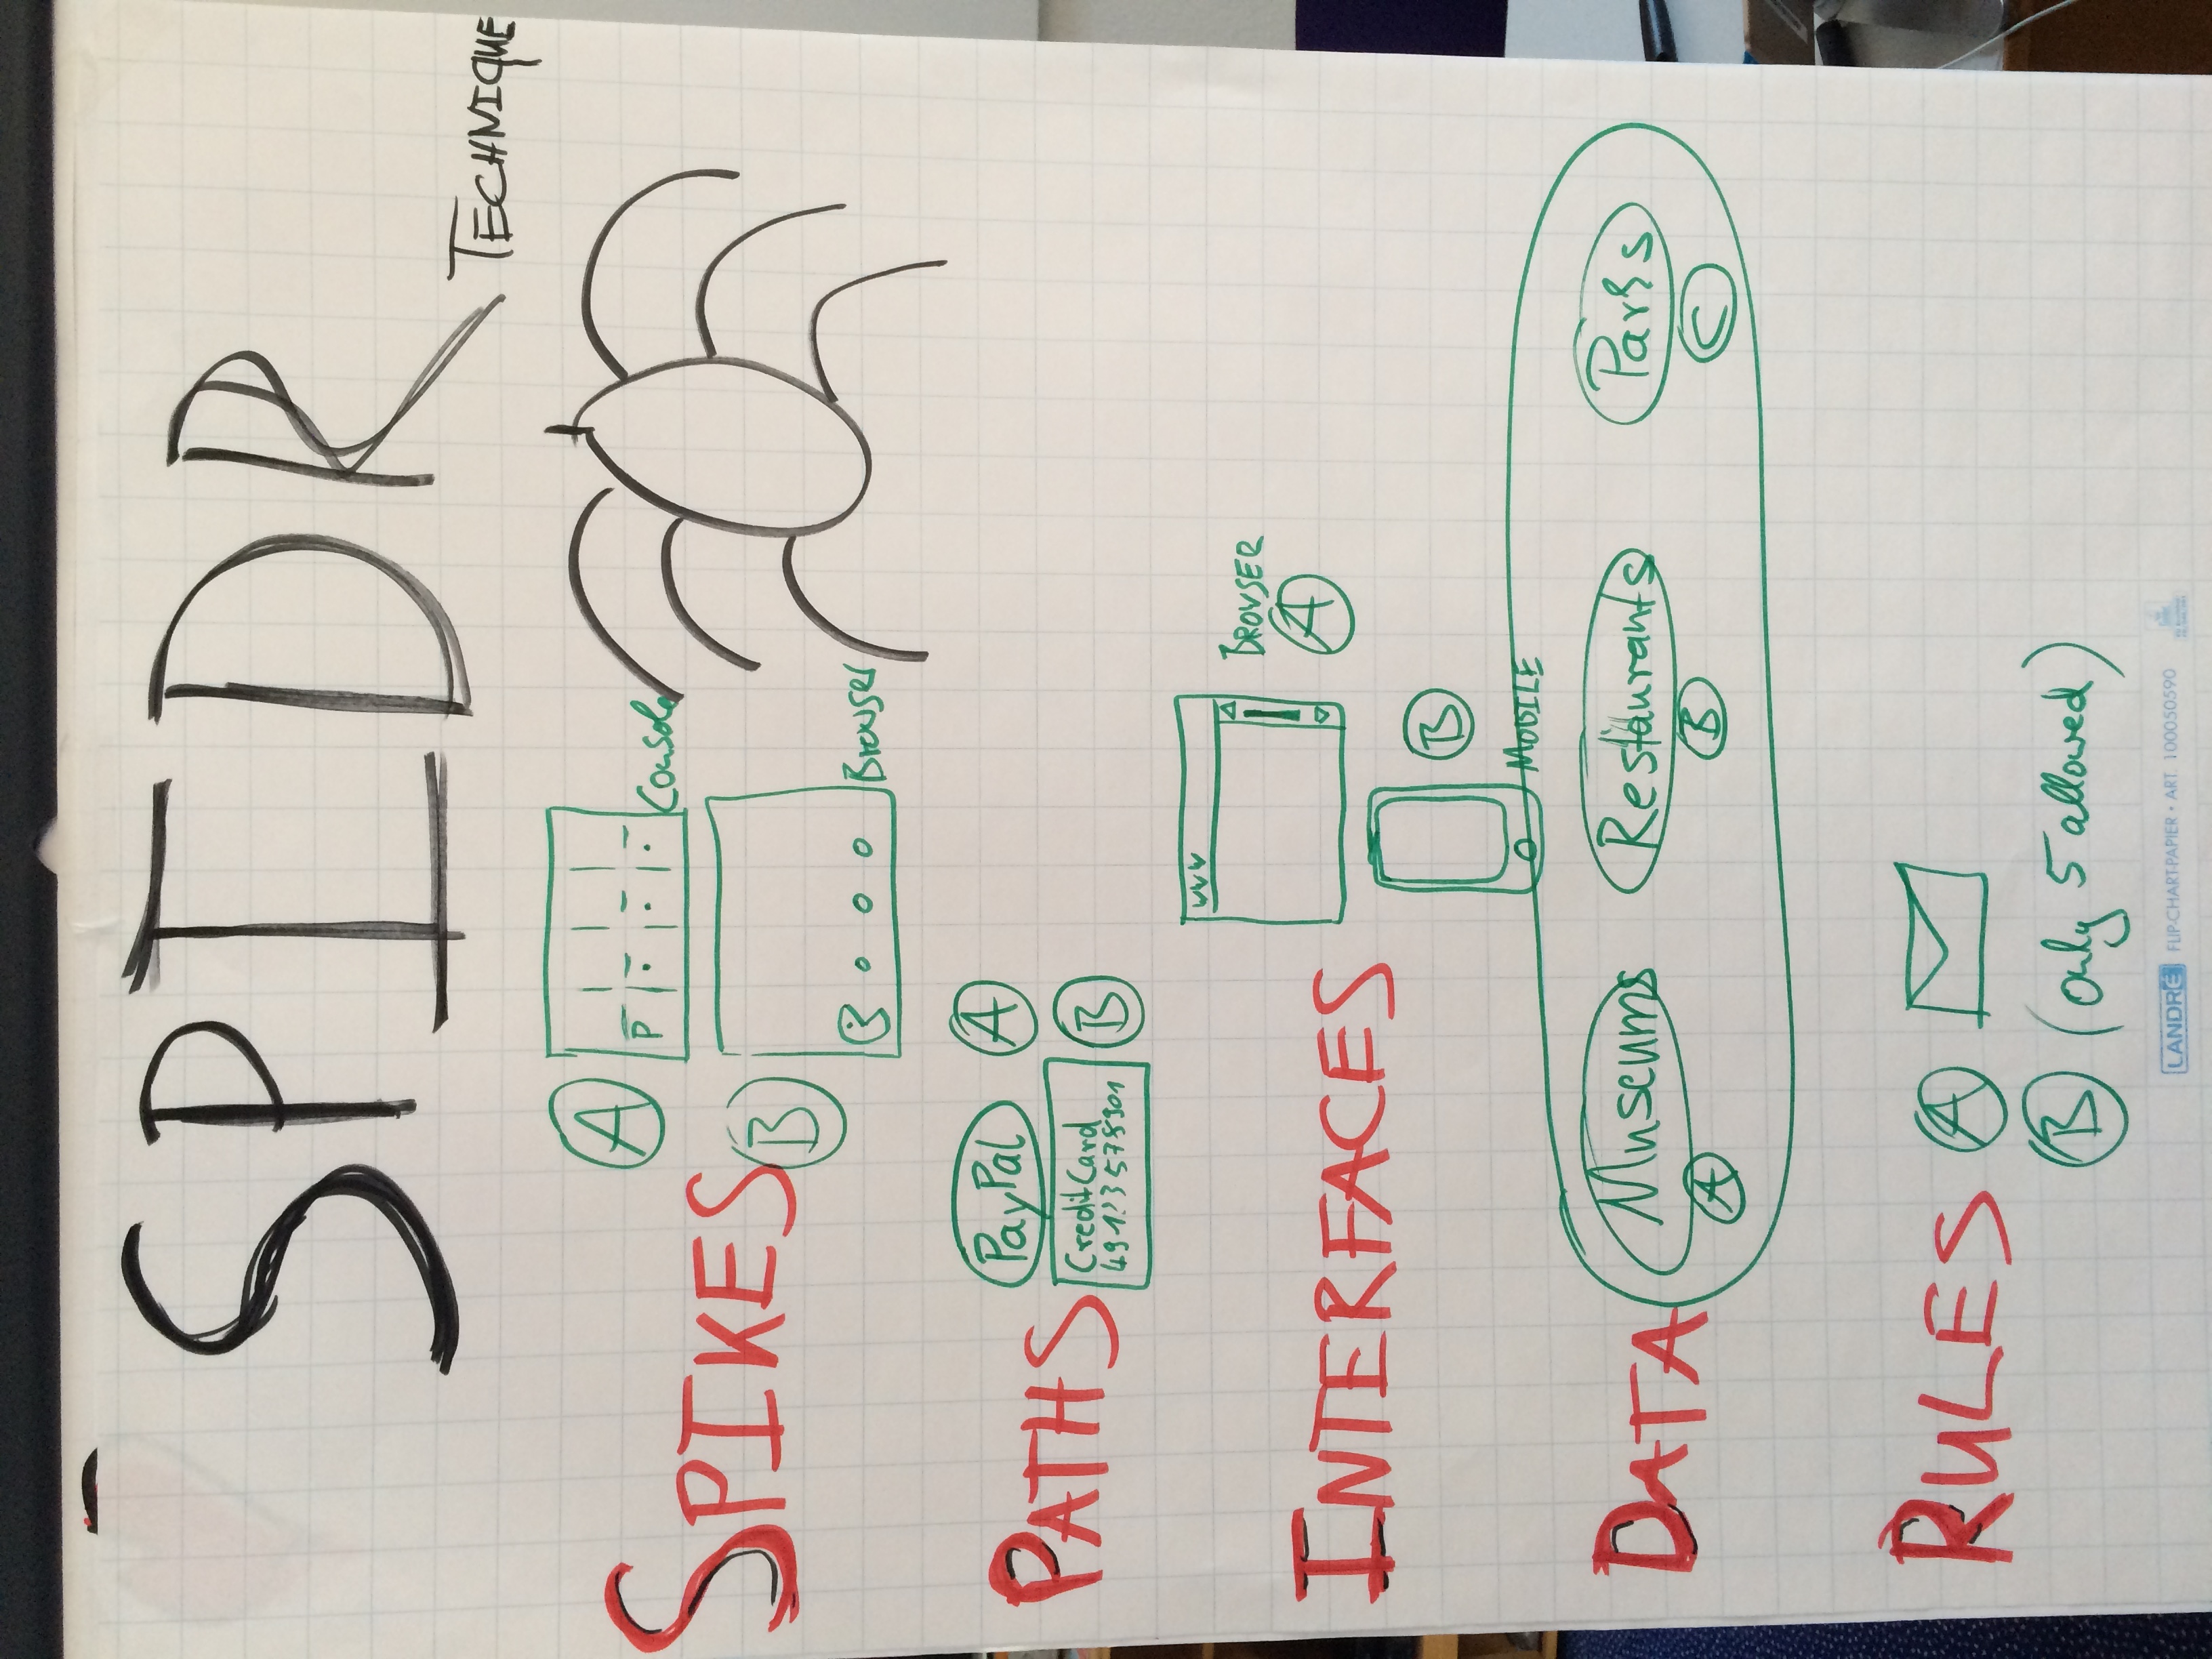 SPIDR
TECHNIQUE
SPIKES
A
P
Console
B
B
Browser
PATHS
PayPal
A
CreditCard
B
INTERFACES
www
BROWSER
A
B
MOBILE
DATA
Museums
Restaurants
Parks
A
B
C
RULES
A
B
(only 5 allowed)
LANDRÉ FLIP-CHART-PAPIER • ART. 100050590